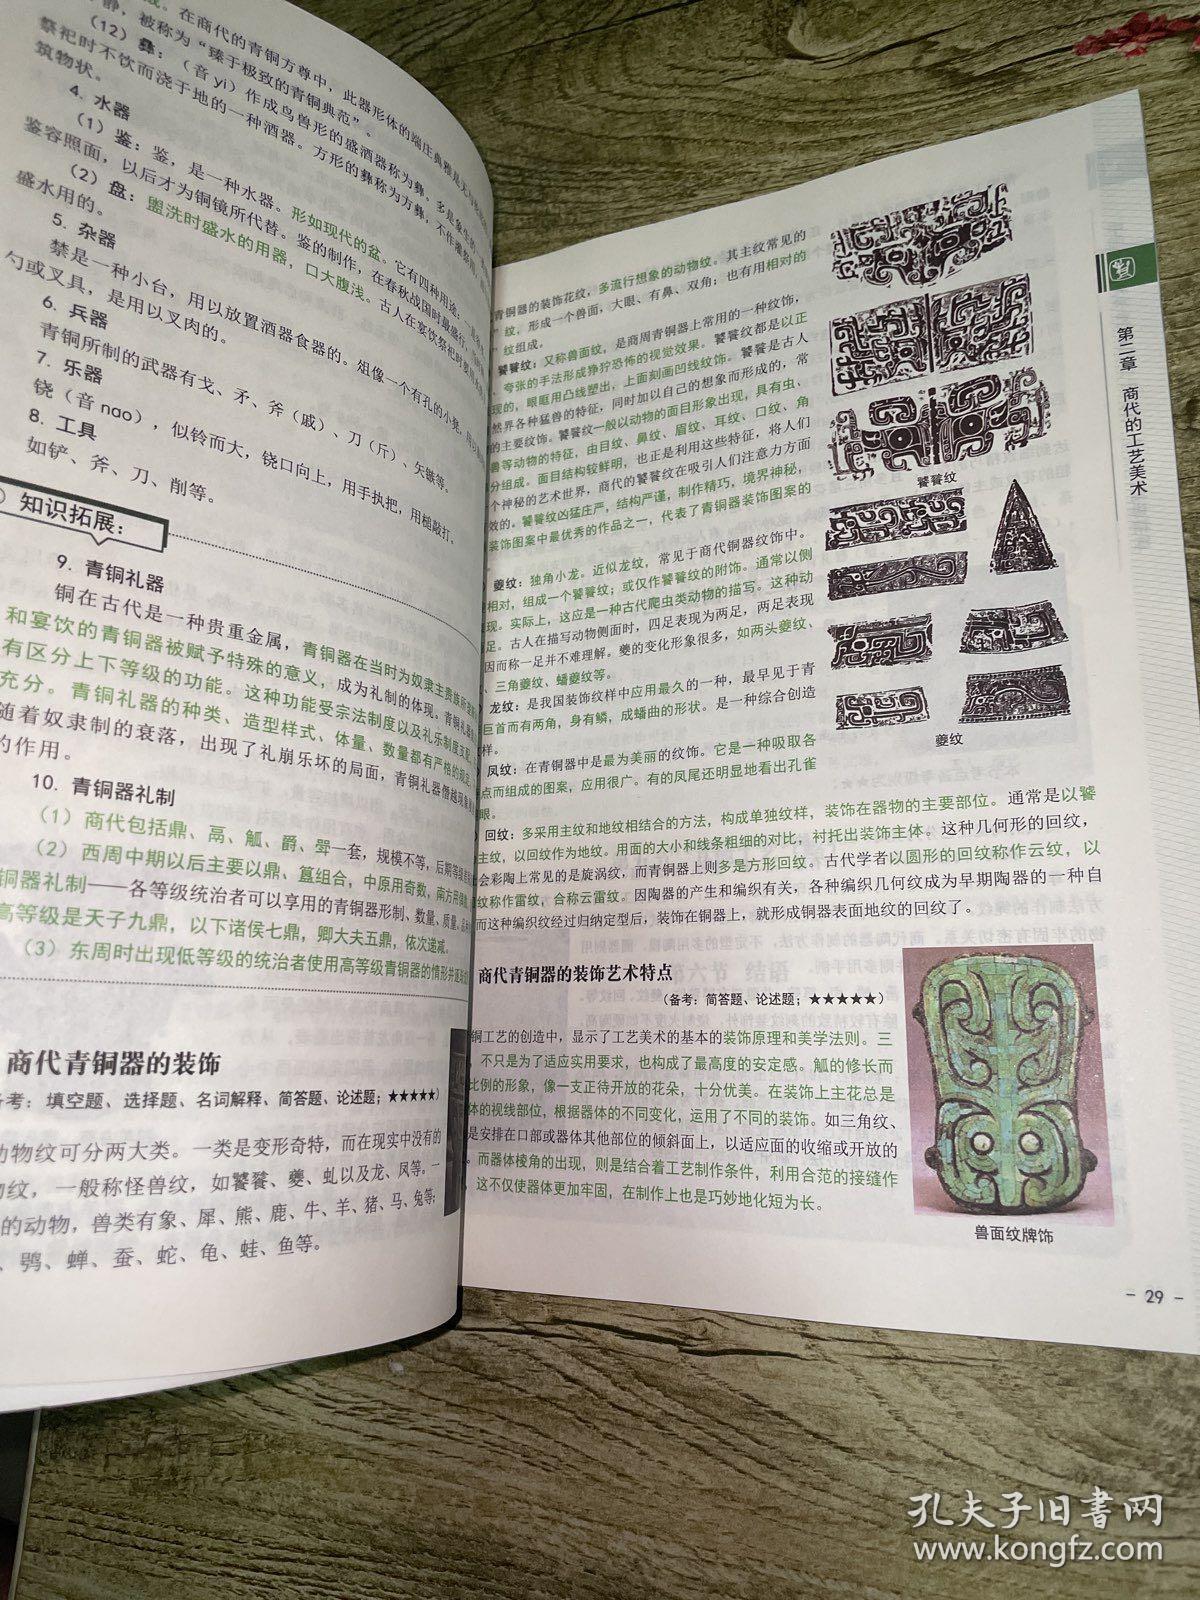 在商代的青铜方尊中，此器形体的端庄典雅是无与
静，被称为“臻于极致的青铜典范”。
（12）彝：（音yi）作成鸟兽形的盛酒器称为彝。多是象生的
祭祀时不饮而浇于地的一种酒器。方形的彝称为方彝，不作
筑物状。
4. 水器
（1）鉴：鉴，是一种水器。形如现代的盆。它有四种用途：
鉴容照面，以后才为铜镜所代替。鉴的制作，在春秋战国时最盛行，
（2）盘：盥洗时盛水的用器，口大腹浅。古人在宴饮祭祀时要
盛水用的。
5. 杂器
禁是一种小台，用以放置酒器食器的。俎像一个有孔的小凳，用
勺或叉具，是用以叉肉的。
6. 兵器
青铜所制的武器有戈、矛、斧（戚）、刀（斤）、矢镞等。
7. 乐器
铙（音nao），似铃而大，铙口向上，用手执把，用槌敲打。
8. 工具
如铲、斧、刀、削等。
知识拓展：
9. 青铜礼器
铜在古代是一种贵重金属，青铜器在当时为奴隶主贵族所
和宴饮的青铜器被赋予特殊的意义，成为礼制的体现。青铜礼器
有区分上下等级的功能。这种功能受宗法制度以及礼乐制度支配，
充分。青铜礼器的种类、造型样式、体量、数量都有严格的规定。
随着奴隶制的衰落，出现了礼崩乐坏的局面，青铜礼器僭越现象
的作用。
10. 青铜器礼制
（1）商代包括鼎、鬲、觚、爵、斝一套，规模不等，后期等级
（2）西周中期以后主要以鼎、簋组合，中原用奇数，南方用偶数。
铜器礼制——各等级统治者可以享用的青铜器形制、数量、质量、品种
高等级是天子九鼎，以下诸侯七鼎，卿大夫五鼎，依次递减。
（3）东周时出现低等级的统治者使用高等级青铜器的情形并逐
商代青铜器的装饰
备考：填空题、选择题、名词解释、简答题、论述题；★★★★★）
动物纹可分两大类。一类是变形奇特，而在现实中没有的
物纹，一般称怪兽纹，如饕餮、夔、虬以及龙、凤等。一
的动物，兽类有象、犀、熊、鹿、牛、羊、猪、马、兔等；
、鸮、蝉、蚕、蛇、龟、蛙、鱼等。
青铜器的装饰花纹，多流行想象的动物纹。其主纹常见的
”纹，形成一个兽面，大眼、有鼻、双角；也有用相对的
纹组成。
饕餮纹：又称兽面纹，是商周青铜器上常用的一种纹饰，
夸张的手法形成狰狞恐怖的视觉效果。饕餮纹都是以正
现的，眼眶用凸线塑出，上面刻画凹线纹饰。饕餮是古人
然界各种猛兽的特征，同时加以自己的想象而形成的，常
的主要纹饰。饕餮纹一般以动物的面目形象出现，具有虫、
兽等动物的特征，由目纹、鼻纹、眉纹、耳纹、口纹、角
分组成。面目结构较鲜明，也正是利用这些特征，将人们
个神秘的艺术世界，商代的饕餮纹在吸引人们注意力方面
效的。饕餮纹凶猛庄严，结构严谨，制作精巧，境界神秘，
装饰图案中最优秀的作品之一，代表了青铜器装饰图案的
夔纹：独角小龙。近似龙纹，常见于商代铜器纹饰中。
相对，组成一个饕餮纹；或仅作饕餮纹的附饰。通常以侧
现。实际上，这应是一种古代爬虫类动物的描写。这种动
足。古人在描写动物侧面时，四足表现为两足，两足表现
因而称一足并不难理解。夔的变化形象很多，如两头夔纹、
、三角夔纹、蟠夔纹等。
龙纹：是我国装饰纹样中应用最久的一种，最早见于青
巨首而有两角，身有鳞，成蟠曲的形状。是一种综合创造
样。
凤纹：在青铜器中是最为美丽的纹饰。它是一种吸取各
点而组成的图案，应用很广。有的凤尾还明显地看出孔雀
眼。
回纹：多采用主纹和地纹相结合的方法，构成单独纹样，装饰在器物的主要部位。通常是以饕
主纹，以回纹作为地纹。用面的大小和线条粗细的对比，衬托出装饰主体。这种几何形的回纹，
会彩陶上常见的是旋涡纹，而青铜器上则多是方形回纹。古代学者以圆形的回纹称作云纹，以
纹称作雷纹，合称云雷纹。因陶器的产生和编织有关，各种编织几何纹成为早期陶器的一种自
而这种编织纹经过归纳定型后，装饰在铜器上，就形成铜器表面地纹的回纹了。
商代青铜器的装饰艺术特点
（备考：简答题、论述题；★★★★★）
铜工艺的创造中，显示了工艺美术的基本的装饰原理和美学法则。三
，不只是为了适应实用要求，也构成了最高度的安定感。觚的修长而
比例的形象，像一支正待开放的花朵，十分优美。在装饰上主花总是
体的视线部位，根据器体的不同变化，运用了不同的装饰。如三角纹、
是安排在口部或器体其他部位的倾斜面上，以适应面的收缩或开放的
。而器体棱角的出现，则是结合着工艺制作条件，利用合范的接缝作
，这不仅使器体更加牢固，在制作上也是巧妙地化短为长。
饕餮纹
夔纹
兽面纹牌饰
第二章 商代的工艺美术
- 29 -
孔夫子旧书网
www.kongfz.com